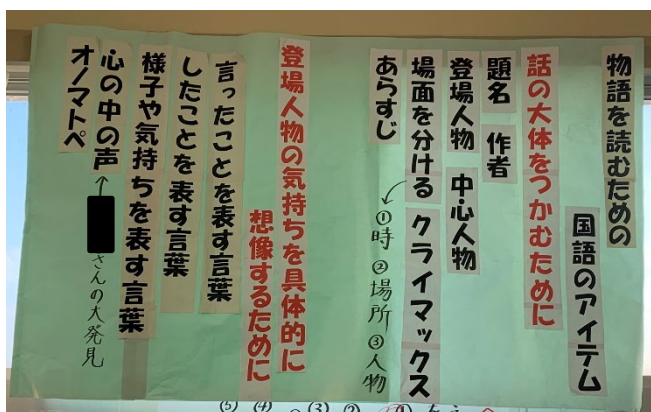 物語を読むための
国語のアイテム
話の大体をつかむために
題名　作者
登場人物　中心人物
場面を分ける　クライマックス
①時②場所③人物
あらすじ
登場人物の気持ちを具体的に
想像するために
言ったことを表す言葉
したことを表す言葉
様子や気持ちを表す言葉
心の中の声
さんの大発見
オノマトペ